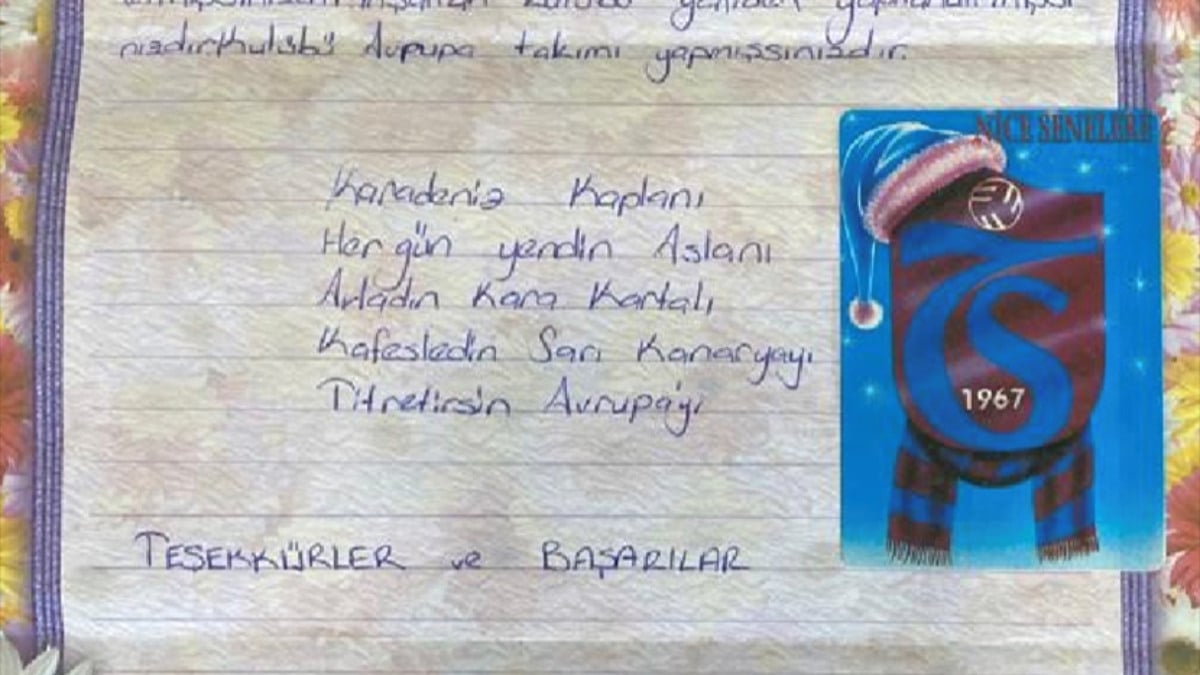 yeniden
nizdir Kulübü Avrupa takımı yapmışsınızdır.
NİCE SENELERE
Karadeniz Kaplanı
Her gün yendin Aslanı
Avladın Kara Kartalı
Kafesledin Sarı Kanaryayı
Titretirsin Avrupa'yı
1967
TEŞEKKÜRLER ve BAŞARILAR